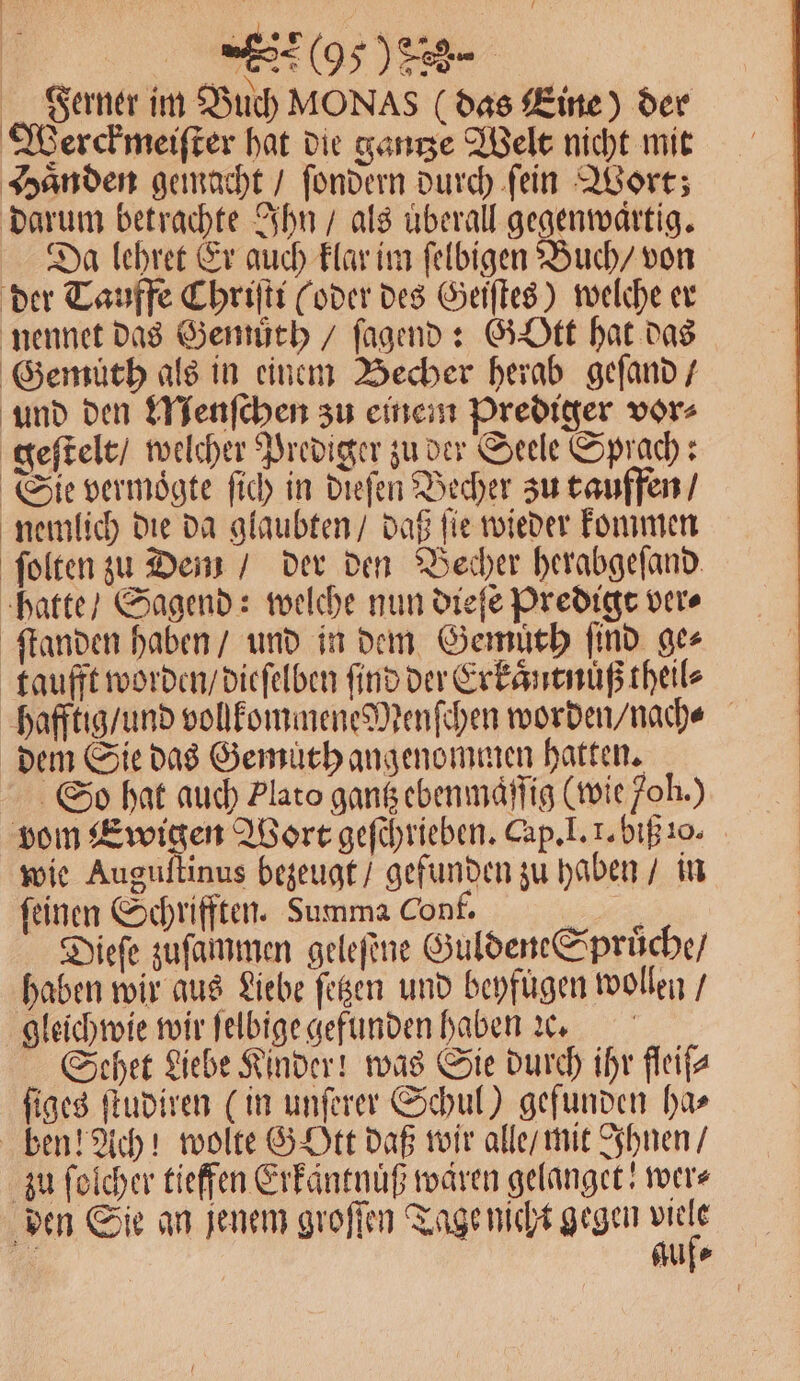 (95)
Ferner im Buch MONAS (das Eine) der
Werckmeiſter hat die gantze Welt nicht mit
Haͤnden gemacht / ſondern durch ſein Wort;
darum betrachte Ihn / als uͤberall gegenwaͤrtig.
Da lehret Er auch klar im ſelbigen Buch / von
der Tauffe Chriſti (oder des Geiſtes) welche er
nennet das Gemuͤth / ſagend : GOtt hat das
Gemuͤth als in einem Becher herab geſand /
und den Menſchen zu einem Prediger vor⸗
geſtelt / welcher Prediger zu der Seele Sprach :
Sie vermoͤgte ſich in dieſen Becher zu tauffen /
nemlich die da glaubten / daß ſie wieder kommen
ſolten zu Dem / der den Becher herabgeſand
hatte / Sagend : welche nun dieſe Predigt ver⸗
ſtanden haben / und in dem Gemuͤth ſind ge⸗
taufft worden / dieſelben ſind der Erkaͤntnuͤß theil⸗
hafftig / und vollkommene Menſchen worden / nach⸗
dem Sie das Gemuͤth angenommen hatten.
So hat auch Plato gantz ebenmaͤſſig (wie Joh.)
vom Ewigen Wort geſchrieben. Cap. I. 1. biß 10.
wie Auguſtinus bezeugt / gefunden zu haben / in
ſeinen Schrifften. Summa Conf.
Dieſe zuſammen geleſene Guldene Spruͤche /
haben wir aus Liebe ſetzen und beyfuͤgen wollen /
gleichwie wir ſelbige gefunden haben ꝛc.
Sehet Liebe Kinder! was Sie durch ihr fleiſ⸗
ſiges ſtudiren (in unſerer Schul) gefunden ha⸗
ben! Ach! wolte GOtt daß wir alle / mit Ihnen /
zu ſolcher tieffen Erkaͤntnuͤß waͤren gelanget! wer⸗
den Sie an jenem groſſen Tage nicht gegen viele
auf⸗